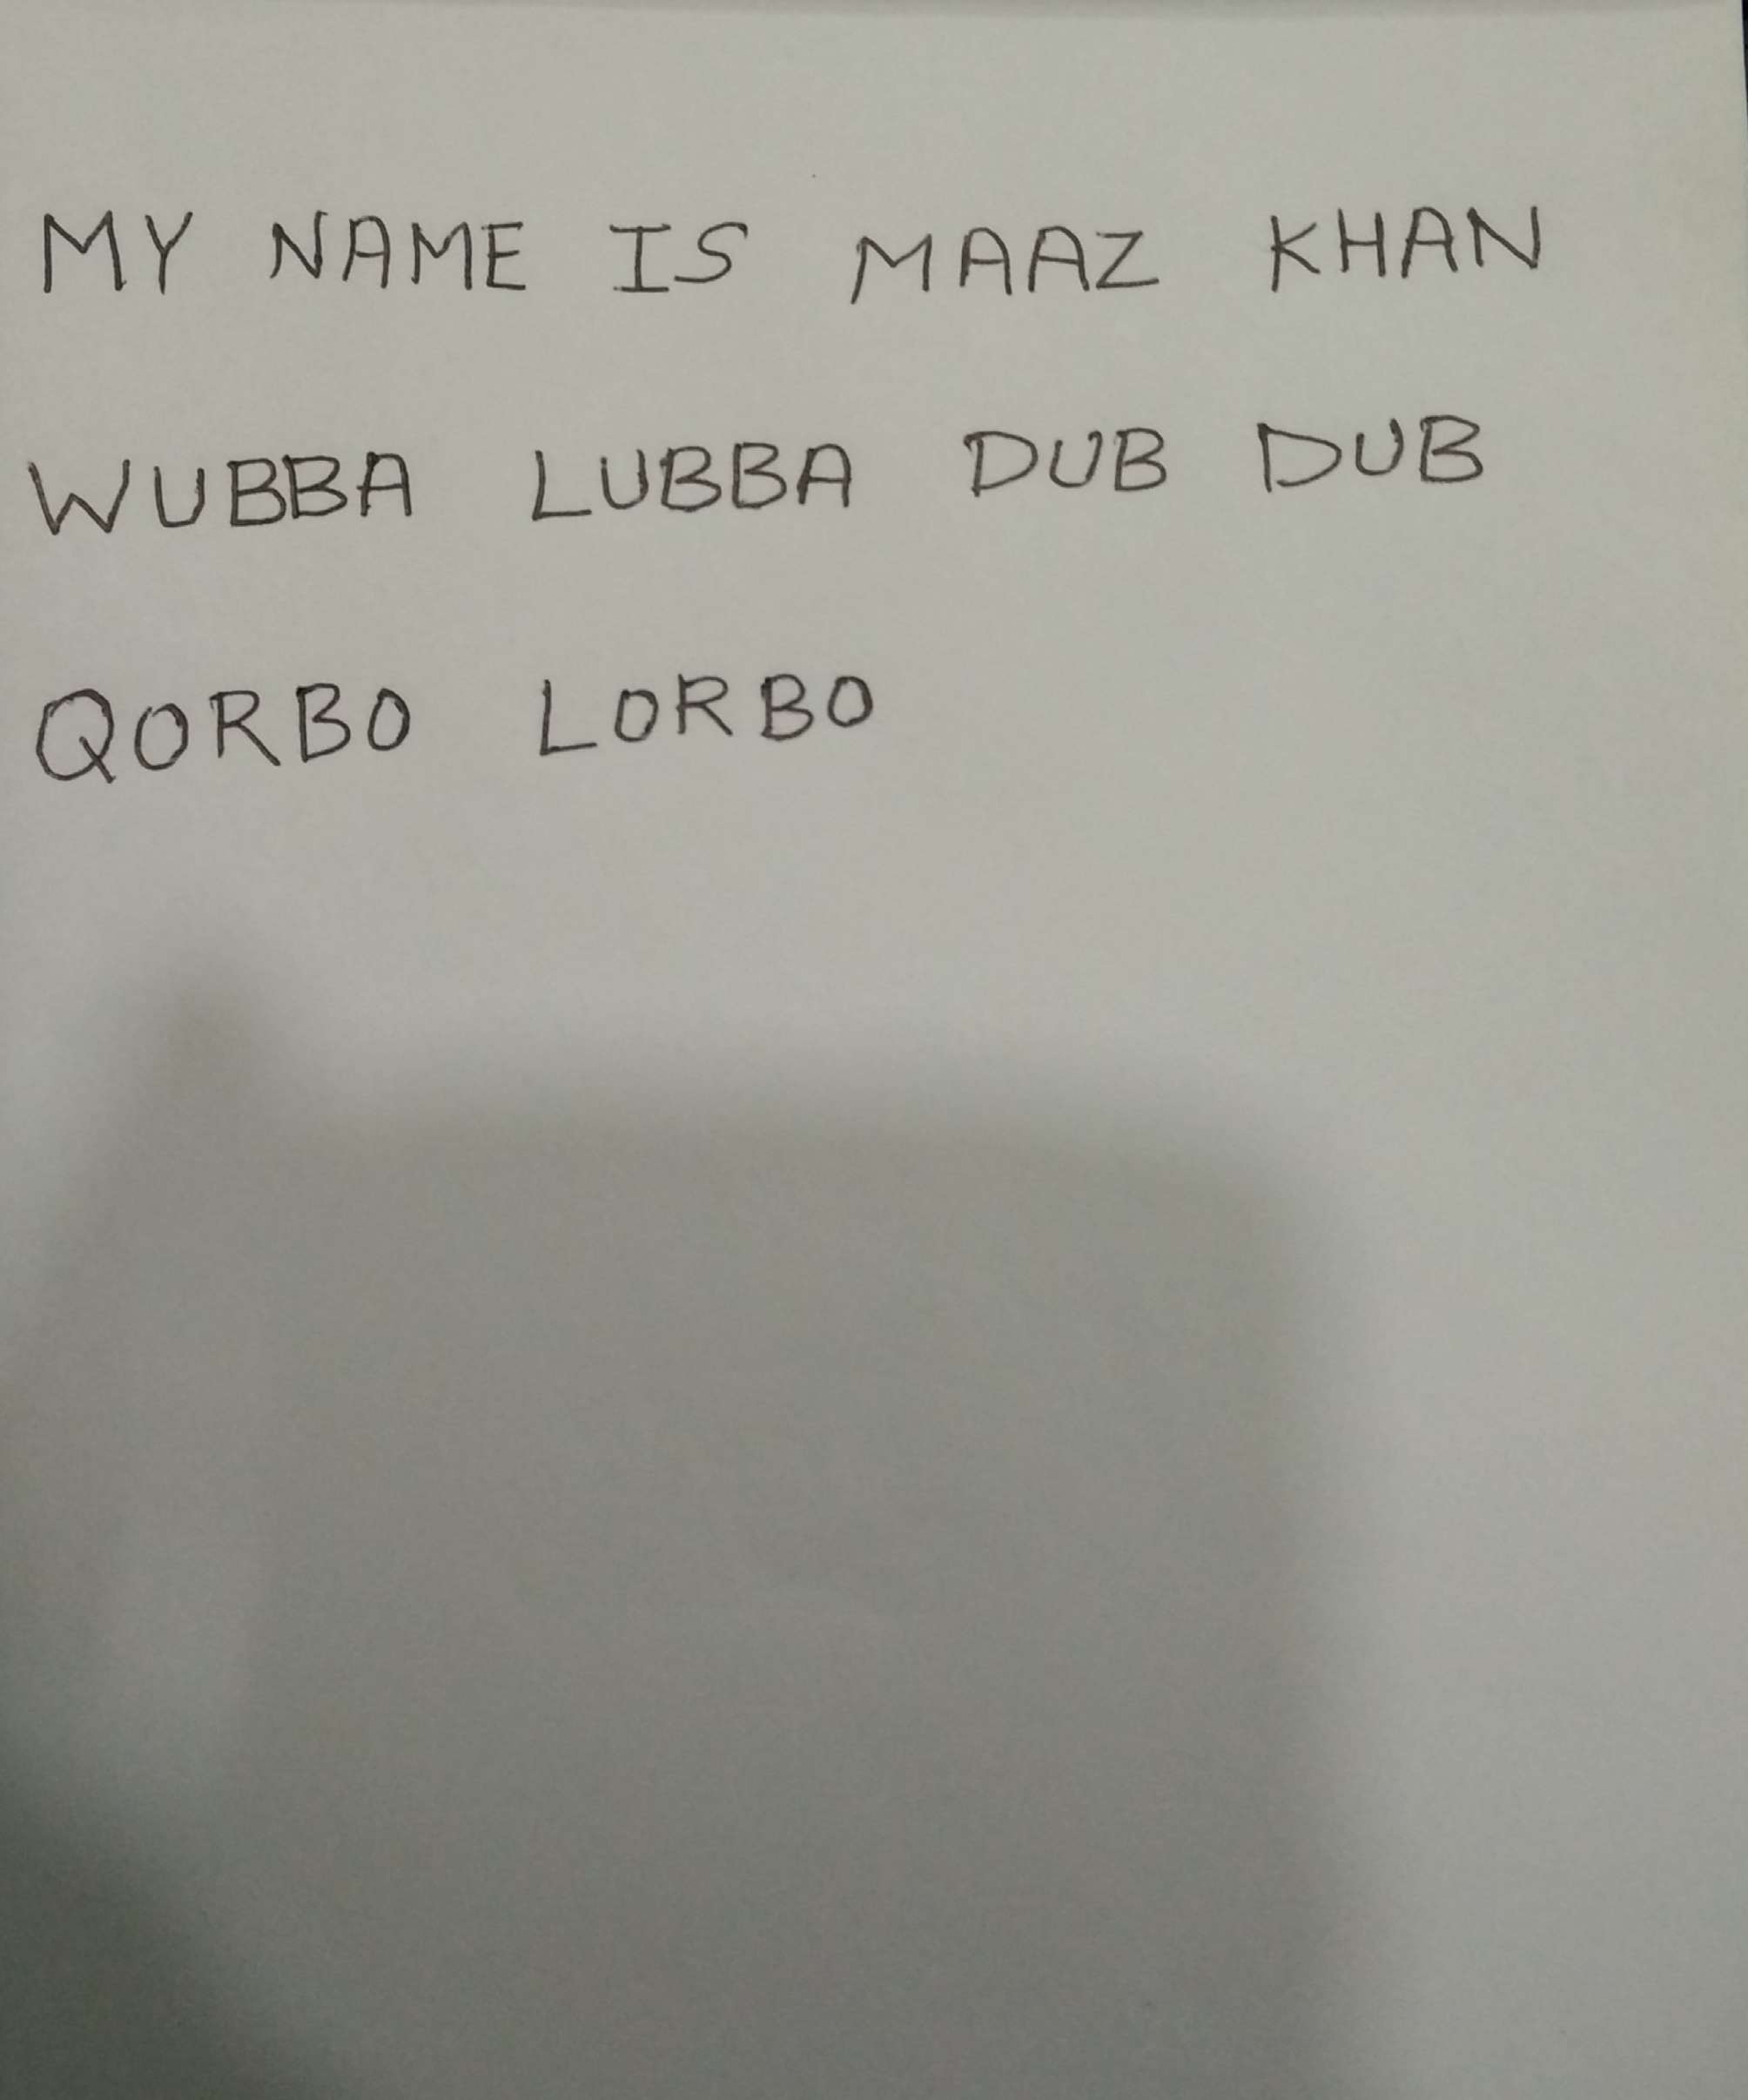 MY NAME IS MAAZ KHAN
WUBBA LUBBA DUB DUB
QORBO LORBO